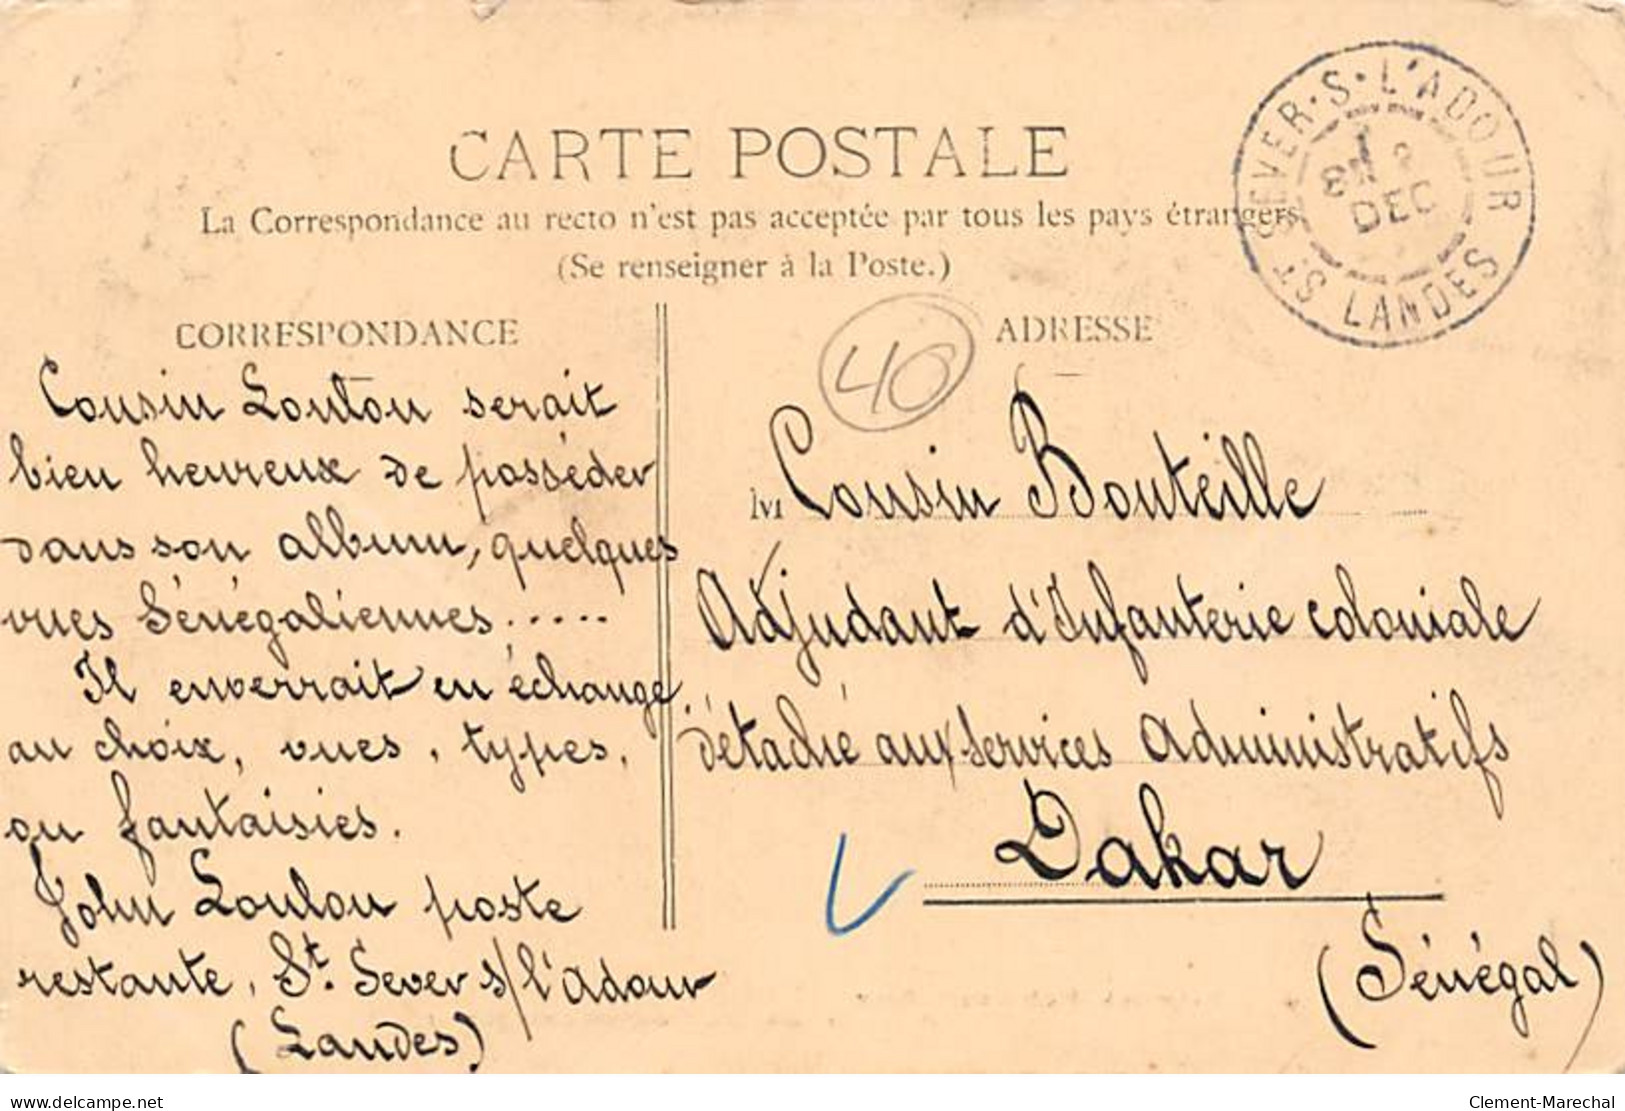 CARTE POSTALE
La Correspondance au recto n'est pas acceptée par tous les pays étrangers
(Se renseigner à la Poste.)
ST SEVER·S·L'ADOUR
DEC
LANDES
CORRESPONDANCE
Cousin Loulou serait
bien heureux de posséder
dans son album, quelques
vues Sénégaliennes.....
Il enverrait en échange
au choix, vues, types,
ou fantaisies.
John Loulou poste
restante, St. Sever s/l'Adour
(Landes)
40
ADRESSE
M Cousin Bouteille
Adjudant d'Infanterie coloniale
détaché aux Services Administratifs
Dakar
(Sénégal)
www.delcampe.net
Clement-Marechal